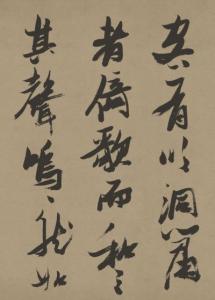 客有吹洞簫
者倚歌而和之
其聲嗚〻然如